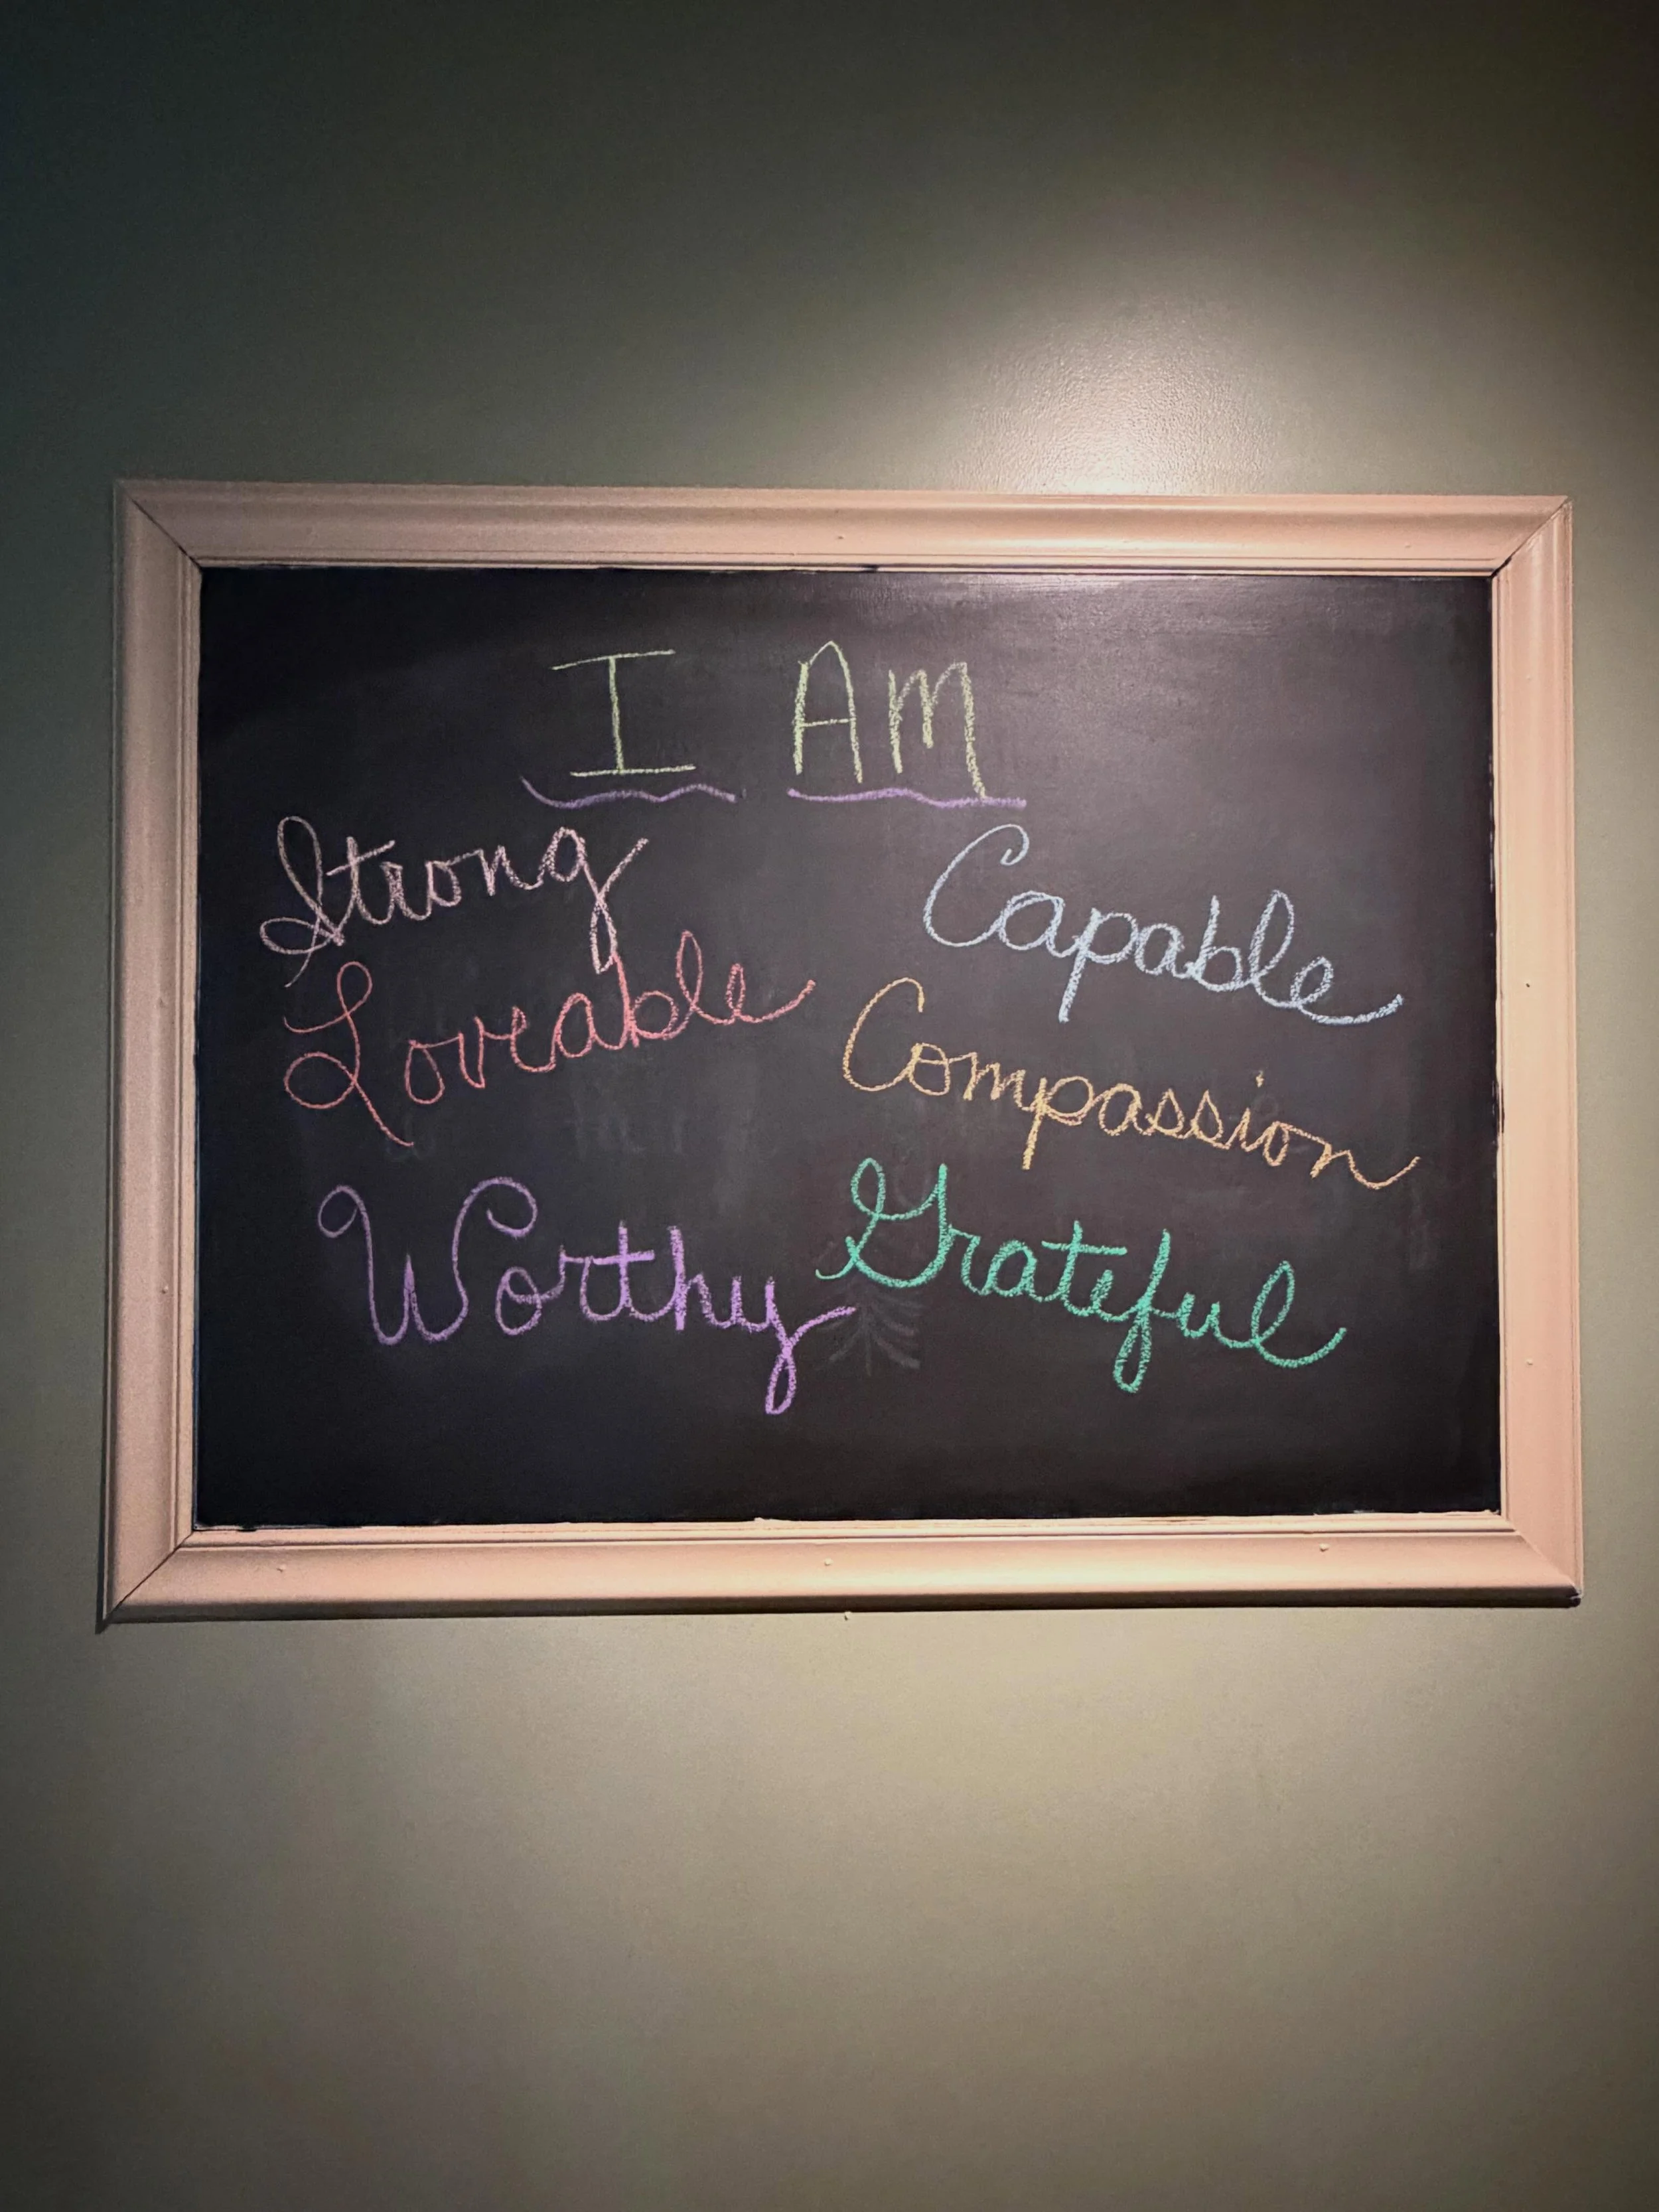 I AM
Strong
Loveable
Worthy
Capable
Compassion
Grateful